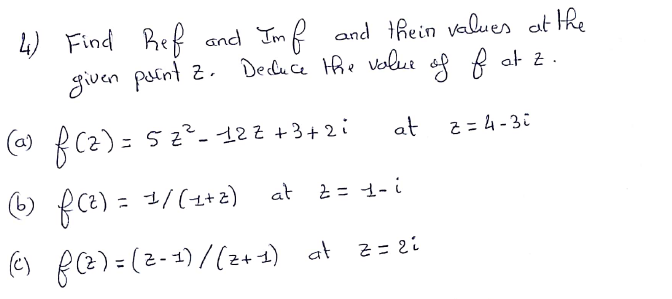 4) Find Ref and Imf and thein values at the
given point z. Deduce the value of f at z.
(a) f(z) = 5z² - 12z + 3 + 2i at z = 4-3i
(b) f(z) = 1/(1+z) at z = 1-i
(c) f(z) = (z-1)/(z+1) at z = 2i